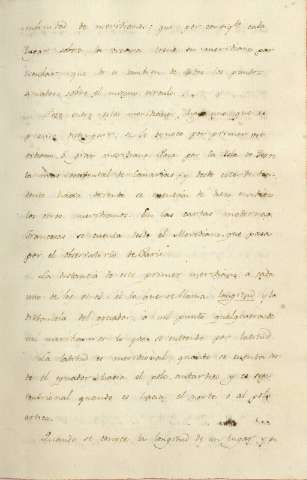 infinidad de meridianos: que por consig.te cada
lugar sobre la tierra tiene su meridiano par
ticular: que lo es tambien de todos los puntos
situados sobre el mismo circulo.
Pero entre estos meridianos, hay uno que es
preciso distinguir, y se le conoce por primer me
ridiano. El primer meridiano pasa por la Isla de Fierro
la mas occidental de Canarias; y desde este de
hacia oriente se cuentan
los otros meridianos. En las cartas modernas
Francesas se cuenta desde el Meridiano que pasa
por el observatorio de Paris.
La distancia de este primer meridiano a cada
uno de los otros es la que se llama longitud y la
distancia del equador a un punto qualquiera de
un meridiano es lo que se entiende por latitud.
La latitud es meridional, quando se cuenta des
de el equador hacia el polo antartico, y es sep
tentrional quando es hacia el norte o al polo
artico.
Quando se conoce la longitud de un lugar y su